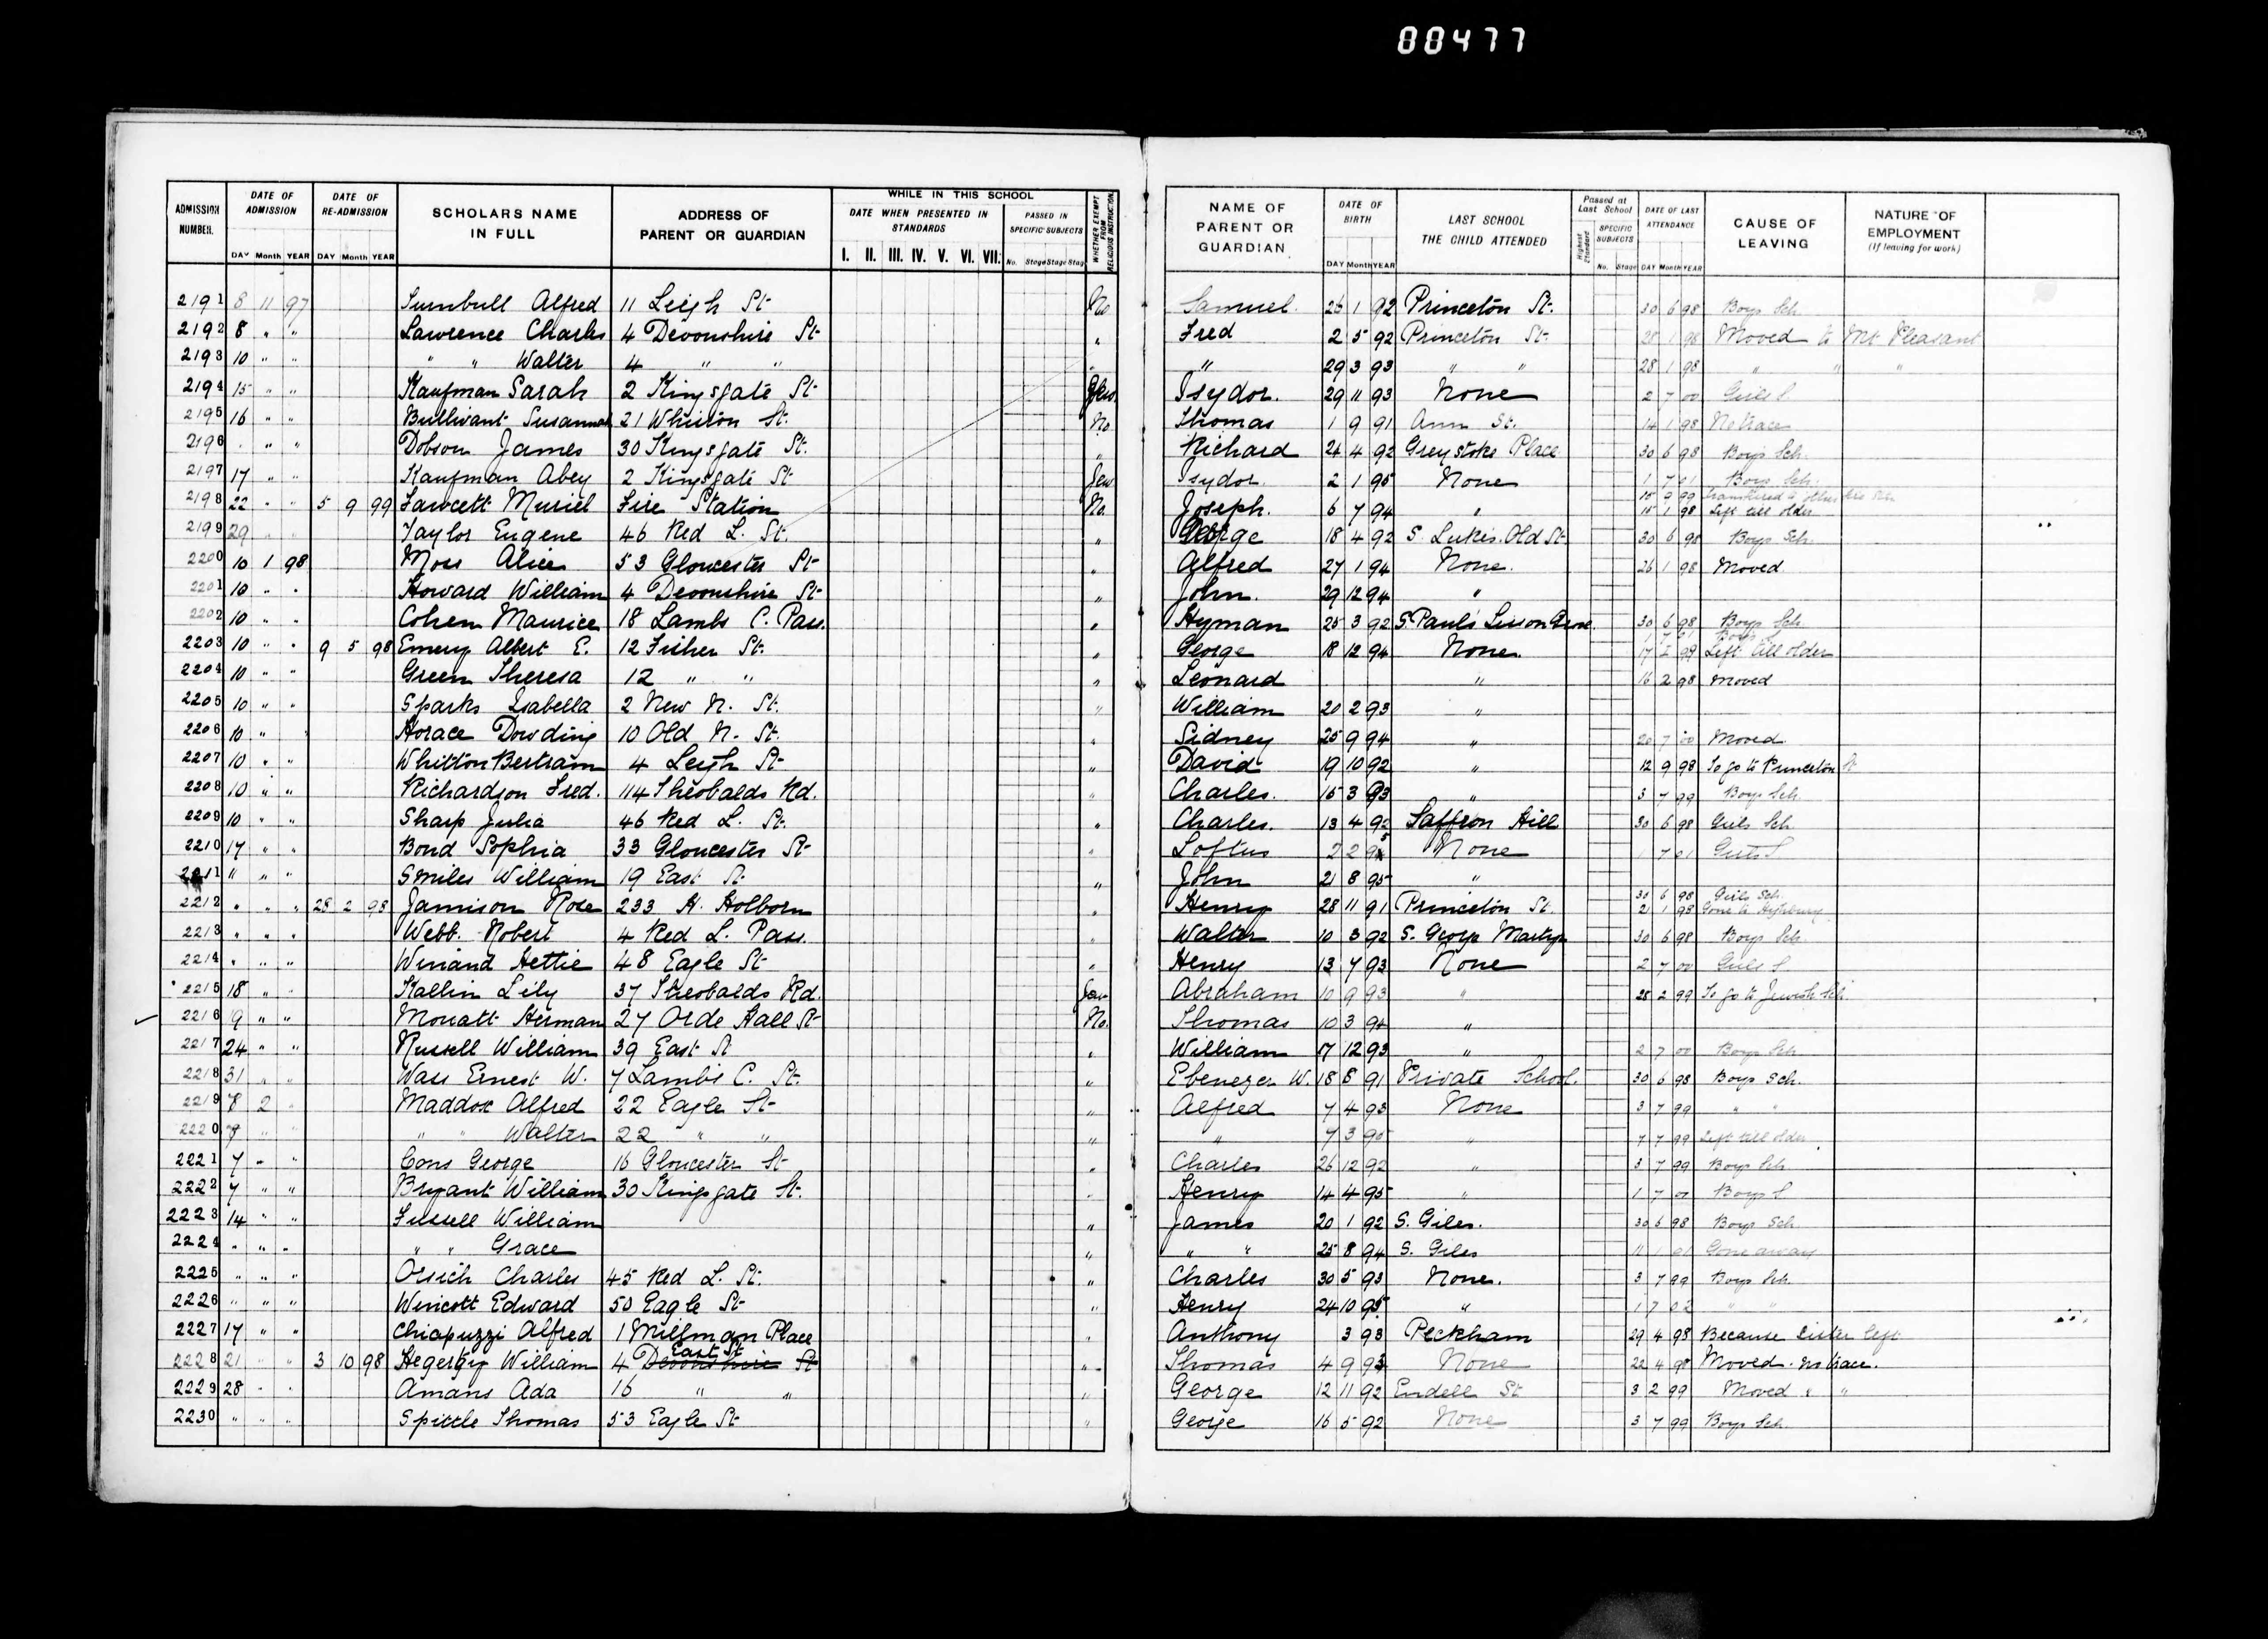 88477
ADMISSION NUMBER. DATE OF ADMISSION DATE OF RE-ADMISSION SCHOLARS NAME IN FULL ADDRESS OF PARENT OR GUARDIAN WHILE IN THIS SCHOOL DATE WHEN PRESENTED IN STANDARDS PASSED IN SPECIFIC SUBJECTS WHETHER EXEMPT FROM RELIGIOUS INSTRUCTION. NAME OF PARENT OR GUARDIAN. DATE OF BIRTH LAST SCHOOL THE CHILD ATTENDED Passed at Last School Highest Standard SPECIFIC SUBJECTS DATE OF LAST ATTENDANCE CAUSE OF LEAVING NATURE OF EMPLOYMENT (If leaving for work)
DAY Month YEAR DAY Month YEAR I. II. III. IV. V. VI. VII. No. Stage Stage Stag DAY Month YEAR No. Stage DAY Month YEAR
2191 8 11 97 Turnbull Alfred 11 Leigh St No Samuel. 26 1 92 Princeton St. 30 6 98 Boys Sch
2192 8 " " Lawrence Charles 4 Devonshire St " Fred 2 5 92 Princeton St. 28 1 98 Moved to Mt Pleasant
2193 10 " " " " Walter 4 " " " " 29 3 93 " " 28 1 98 " " "
2194 15 " " Kaufman Sarah 2 Kingsgate St Jew Isydor. 29 11 93 None 2 7 00 Girls S.
2195 16 " " Bullivant Susannah 21 St. No Thomas 1 9 91 Ann St. 14 1 98 No trace
2196 " " " Dobson James 30 Kingsgate St. " Richard 24 4 92 Greystoke Place 30 6 98 Boys Sch.
2197 17 " " Kaufman Abey 2 Kingsgate St Jew Isydor. 2 1 95 None 1 7 01 Boys Sch.
2198 22 " " 5 9 99 Fawcett Muriel Fire Station No. Joseph. 6 7 94 " 15 9 99 transferred to
15 1 98 Left till older
2199 29 " " Taylor Eugene 46 Red L. St. " George 18 4 92 S. Lukes. Old St 30 6 98 Boys Sch.
2200 10 1 98 Moss Alice 53 Gloucester St " Alfred 27 1 94 None. 26 1 98 Moved
2201 10 " " Howard William 4 Devonshire St " John. 29 12 94 "
2202 10 " " Cohen Maurice 18 Lambs C. Pass. " Hyman 25 3 92 S. Pauls Lisson Grove. 30 6 98 Boys Sch
2203 10 " " 9 5 98 Emery Albert E. 12 Fisher St. " George 18 12 94 None. 1 7 01 Boys S
17 2 98 Left till older
2204 10 " " Green Theresa 12 " " " Leonard " 16 2 98 Moved
2205 10 " " Sparks Isabella 2 New N. St. " William 20 2 93 "
2206 10 " Horace Dowding 10 Old N. St. " Sidney 25 9 94 " 20 7 00 Moved
2207 10 " " Whitton Bertram 4 Leigh St " David 19 10 92 " 12 9 98 To go to Princeton St
2208 10 " " Richardson Fred. 114 Theobalds Rd. " Charles. 15 3 93 " 3 7 99 Boys Sch
2209 10 " " Sharp Julia 46 Red L. St. " Charles. 13 4 92 Saffron Hill 30 6 98 Girls Sch
2210 17 " " Bond Sophia 33 Gloucester St " Loftus 2 2 95 None 1 7 01 Girls S
2211 " " " Smiles William 19 East St. " John 21 8 95 "
2212 " " " 28 2 98 Jamison Rose 233 H. Holborn " Henry 28 11 91 Princeton St. 30 6 98 Girls Sch
21 1 98 Gone to Highbury
2213 " " " Webb. Robert 4 Red L. Pass. " Walter 10 3 92 S. George Martyr 30 6 98 Boys Sch
2214 " " " Winand Hettie 48 Eagle St " Henry 13 7 93 None 2 7 00 Girls S
2215 18 " " Kallin Lily 37 Theobalds Rd. Jew Abraham 10 9 93 " 28 2 99 To go to Jewish Sch
2216 19 " " Mouatt Herman 27 Orde Hall St No. Thomas 10 3 94 "
2217 24 " " Russell William 39 East St " William 17 12 93 " 2 7 00 Boys Sch
2218 31 " " Wass Ernest W. 7 Lambs C. St. " Ebenezer W. 18 8 91 Private School. 30 6 98 Boys Sch.
2219 7 2 " Maddox Alfred 22 Eagle St " Alfred 7 4 93 None 3 7 99 " "
2220 7 " " " " Walter 22 " " " " 7 3 95 " 7 7 99 Left till older
2221 7 " " Cons George 16 Gloucester St " Charles 26 12 92 " 3 7 99 Boys Sch
2222 7 " " Bryant William 30 Kingsgate St. " Henry 14 4 95 " 1 7 01 Boys S
2223 14 " " Fussell William " James 20 1 92 S. Giles. 30 6 98 Boys Sch
2224 " " " " " Grace " " " 25 8 94 S. Giles 11 1 01 Gone away
2225 " " " Orsich Charles 45 Red L. St. " Charles 30 5 93 None. 3 7 99 Boys Sch.
2226 " " " Wincott Edward 50 Eagle St " Henry 24 10 95 " 1 7 02 " "
2227 17 " " Chiapuzzi Alfred 1 Millman Place " Anthony 3 93 Peckham 29 4 98 Because Sister left
2228 21 " " 3 10 98 Hegerty William 4 East St Devonshire St " Thomas 4 9 93 None 22 4 98 Moved. No trace.
2229 28 " " Amans Ada 16 " " " George 12 11 92 Endell St 3 2 99 Moved " "
2230 " " " Spittle Thomas 53 Eagle St " George 16 5 92 None 3 7 99 Boys Sch